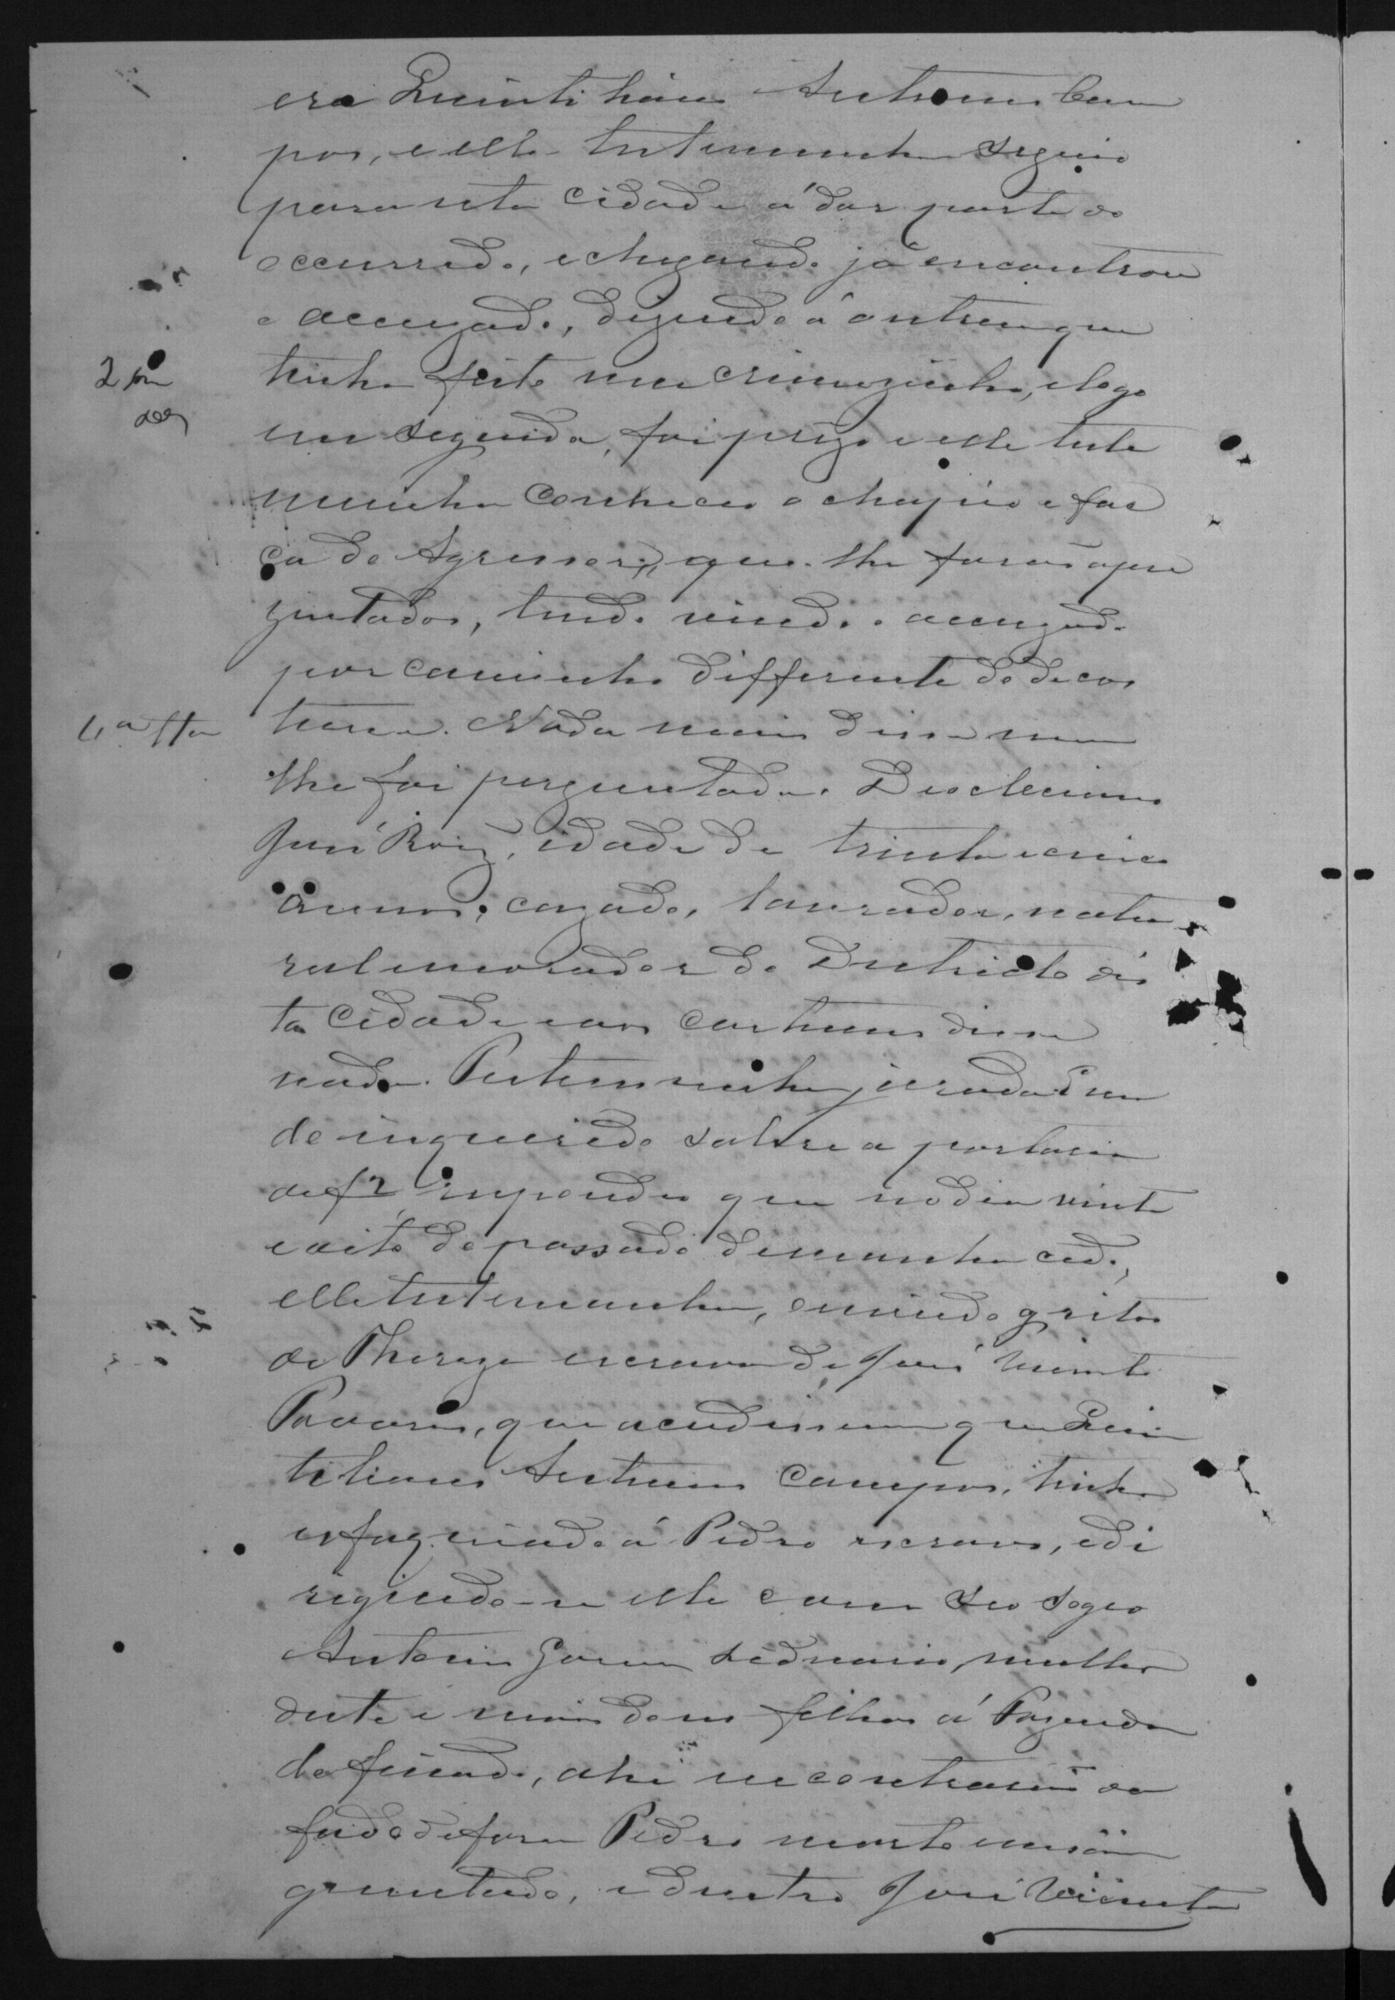 era Quintiliano Antonio Cam
pos, e elle testemunha seguio
para esta cidade á dar parte do
occurrido, e chegando já encontrou
o accuzado, dizendo á outrem que
tinha feito um crimezinho, e logo
em seguida, foi prezo e elle teste
munha conheceo o chapéo e fac
ca do Agressor, que lhe forão apre
zentados, tendo vindo o accuzado
por caminho differente do de cos
tume. Nada mais disse nem
lhe foi perguntado. Diocleciano
José Roiz, idade de trinta e cinco
annos, cazado, lavrador, natu
ral e morador do Districto des
ta cidade e aos costumes disse
nada. Testemunha jurada e sen
do inquirido sobre a portaria
de f 2 respondeo que no dia vinte
e oito do passado de manha cedo,
elle testemunha, ouvindo gritos
de Thereza escrava de José Vicente
Pavares, que acudissem que Quin
tiliano Antonio Campos, tinha
esfaqueado á Pedro escravo, e di
rigindo-se elle com seo sogro
Antonio Gomes Sidronio, mulher
deste e mais dous filhos á Fazenda
do finado, ahi encontrarão do
lado de fora Pedro morto ensan
guentado, e dentro José Vicente